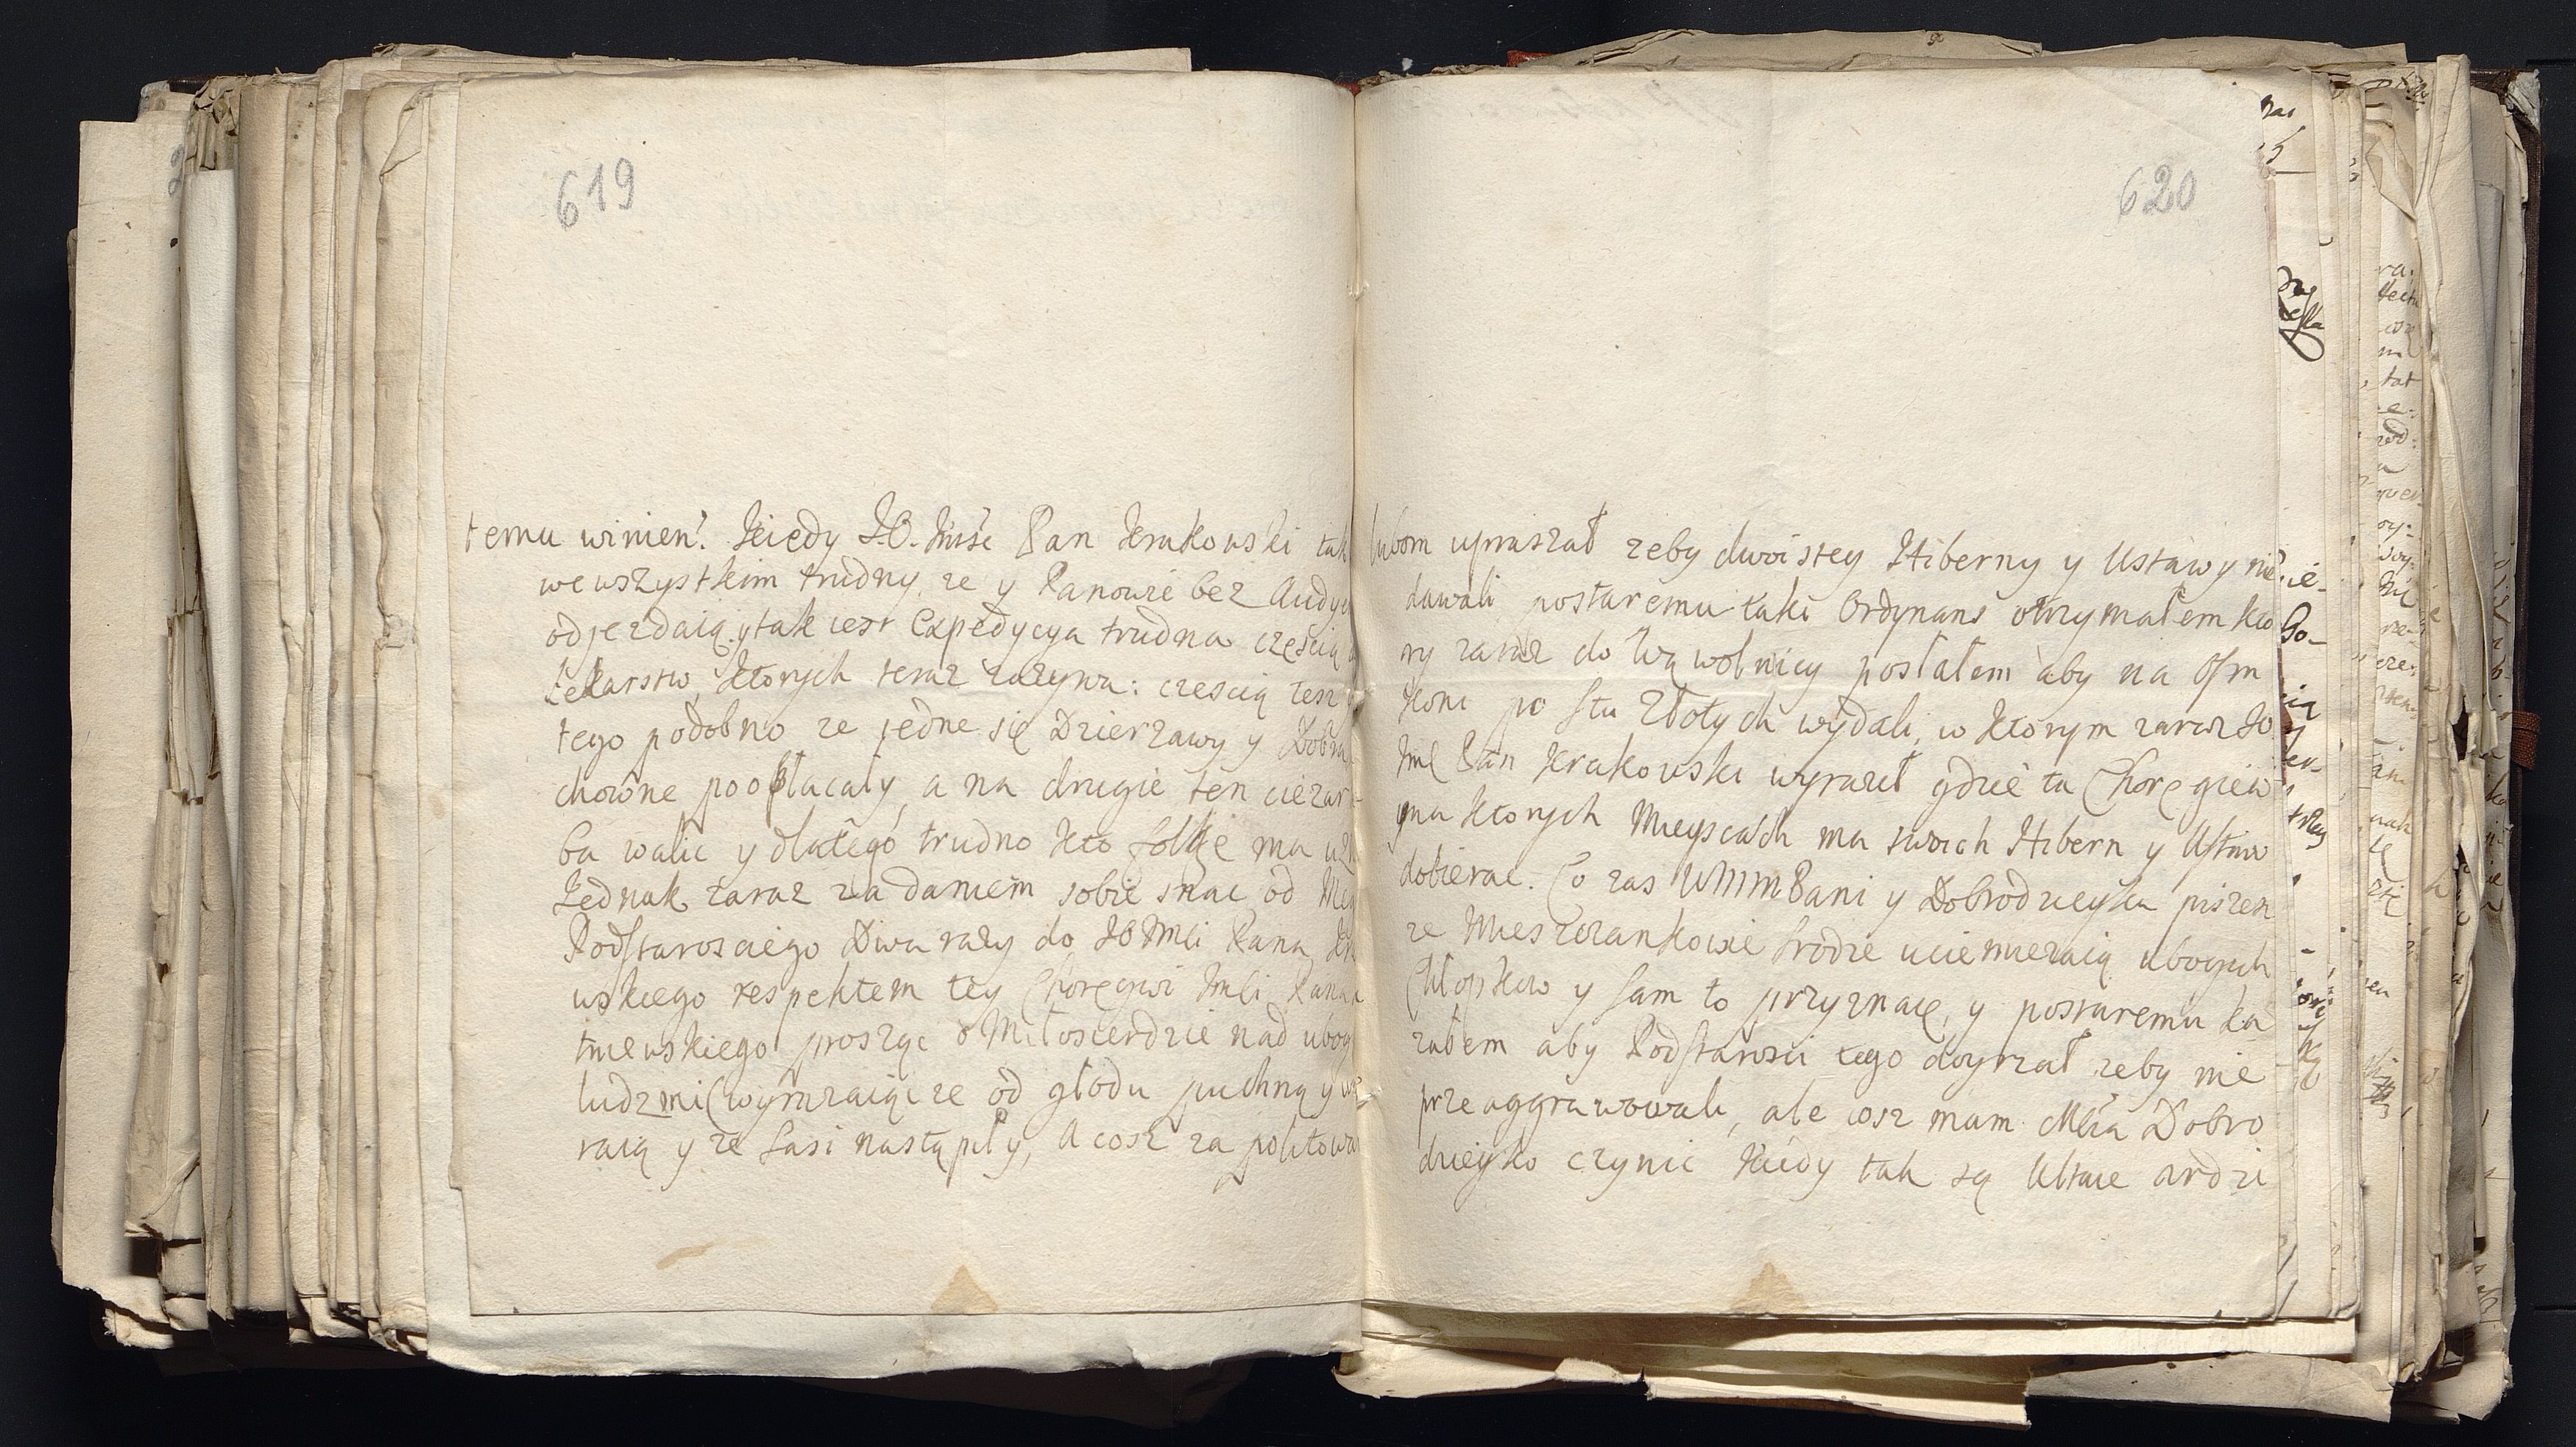 619
temu winien? Kiedy J.O. Jmść Pan Krakowski tak
we wszystkim trudny, ze y Panowie bez Audy
odjezdzaią, y tak iest Expedycya trudna częścią
lekarstw, ktorych teraz zazywa: czescią tesz
tego podobno ze jedne się Dzierzawy y Dobra
chowne poopłacały, a na drugie ten ciezar
ba walic y dlatego trudno kto folgę ma
Jednak zaraz za daniem sobie znac od
Podstarosciego Dwa razy do JOJmci Pana
wskiego respektem tey Choręgwi Jmci Pana
tmewskiego prosząc o Miłosierdzie nad ubog
ludzmi wyrazaiąc ze od głodu puchną y
raią y ze Sasi nastąpiły, A cosz za politowa
620
lubom upraszał zeby dwoistey Hiberny y Ustawy nie
dawali postaremu taki Ordynans otrzymałem kto
ry zaraz do Wąwolnicy posłałem aby na Osm
Koni po Stu Złotych wydali, w ktorym zaraz JO
Jmć Pan Krakowski wyraził gdzie ta Choręgiew
y na ktorych Mieyscach ma swoich Hibern y Ustaw
dobierac. Co zas WMMPani y Dobrodzieyka piszesz
ze Mieszczankowie srodze uciemiezaią ubogich
Chłopkow y sam to przyznaię, y postaremu ka
załem aby Podstarosci tego doyrzał zeby nie
przeaggrawowali, ale cosz mam Mcia Dobro
dzieyko czynic Kiedy tak są Ustaw